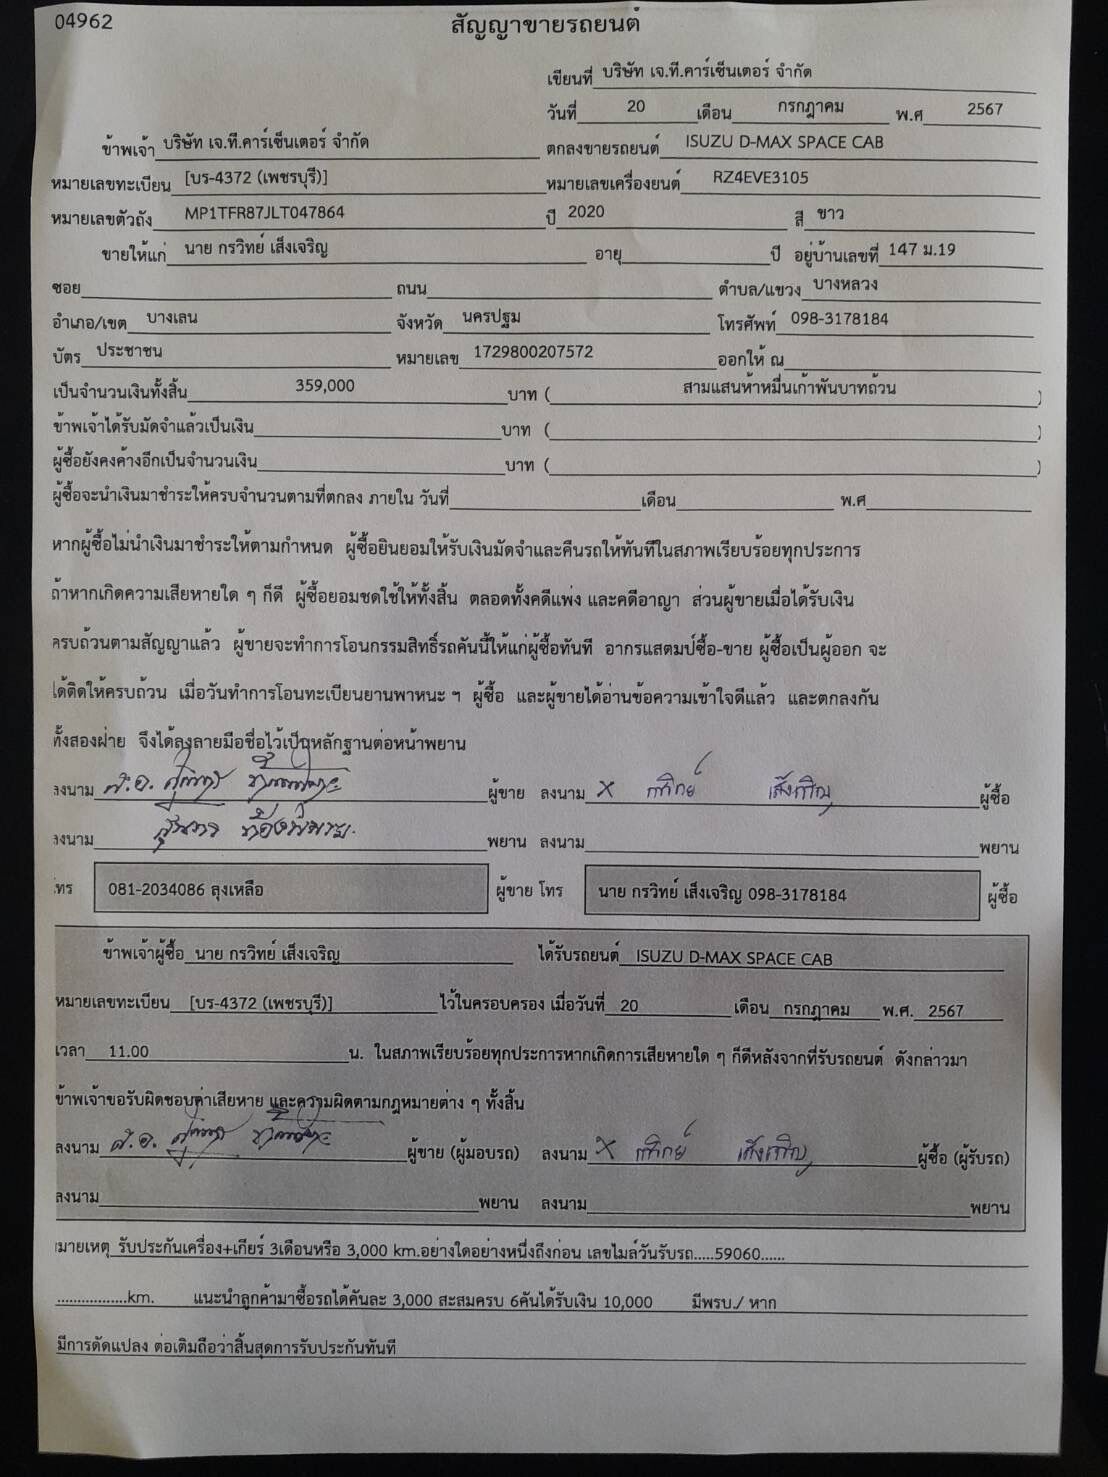 04962
สัญญาขายรถยนต์
เขียนที่ บริษัท เจ.ที.คาร์เซ็นเตอร์ จำกัด
วันที่ 20 เดือน กรกฎาคม พ.ศ 2567
ข้าพเจ้า บริษัท เจ.ที.คาร์เซ็นเตอร์ จำกัด ตกลงขายรถยนต์ ISUZU D-MAX SPACE CAB
หมายเลขทะเบียน [บร-4372 (เพชรบุรี)] หมายเลขเครื่องยนต์ RZ4EVE3105
หมายเลขตัวถัง MP1TFR87JLT047864 ปี 2020 สี ขาว
ขายให้แก่ นาย กรวิทย์ เส็งเจริญ อายุ ปี อยู่บ้านเลขที่ 147 ม.19
ซอย ถนน ตำบล/แขวง บางหลวง
อำเภอ/เขต บางเลน จังหวัด นครปฐม โทรศัพท์ 098-3178184
บัตร ประชาชน หมายเลข 1729800207572 ออกให้ ณ
เป็นจำนวนเงินทั้งสิ้น 359,000 บาท ( สามแสนห้าหมื่นเก้าพันบาทถ้วน )
ข้าพเจ้าได้รับมัดจำแล้วเป็นเงิน บาท ( )
ผู้ซื้อยังคงค้างอีกเป็นจำนวนเงิน บาท ( )
ผู้ซื้อจะนำเงินมาชำระให้ครบจำนวนตามที่ตกลง ภายใน วันที่ เดือน พ.ศ
หากผู้ซื้อไม่นำเงินมาชำระให้ตามกำหนด ผู้ซื้อยินยอมให้รับเงินมัดจำและคืนรถให้ทันทีในสภาพเรียบร้อยทุกประการ
ถ้าหากเกิดความเสียหายใด ๆ ก็ดี ผู้ซื้อยอมชดใช้ให้ทั้งสิ้น ตลอดทั้งคดีแพ่ง และคดีอาญา ส่วนผู้ขายเมื่อได้รับเงิน
ครบถ้วนตามสัญญาแล้ว ผู้ขายจะทำการโอนกรรมสิทธิ์รถคันนี้ให้แก่ผู้ซื้อทันที อากรแสตมป์ซื้อ-ขาย ผู้ซื้อเป็นผู้ออก จะ
ได้ติดให้ครบถ้วน เมื่อวันทำการโอนทะเบียนยานพาหนะ ฯ ผู้ซื้อ และผู้ขายได้อ่านข้อความเข้าใจดีแล้ว และตกลงกัน
ทั้งสองฝ่าย จึงได้ลงลายมือชื่อไว้เป็นหลักฐานต่อหน้าพยาน
ลงนาม ผู้ขาย ลงนาม X กรวิทย์ เส็งเจริญ ผู้ซื้อ
ลงนาม พยาน ลงนาม พยาน
โทร 081-2034086 ลุงเหลือ ผู้ขาย โทร นาย กรวิทย์ เส็งเจริญ 098-3178184 ผู้ซื้อ
ข้าพเจ้าผู้ซื้อ นาย กรวิทย์ เส็งเจริญ ได้รับรถยนต์ ISUZU D-MAX SPACE CAB
หมายเลขทะเบียน [บร-4372 (เพชรบุรี)] ไว้ในครอบครอง เมื่อวันที่ 20 เดือน กรกฎาคม พ.ศ. 2567
เวลา 11.00 น. ในสภาพเรียบร้อยทุกประการหากเกิดการเสียหายใด ๆ ก็ดีหลังจากที่รับรถยนต์ ดังกล่าวมา
ข้าพเจ้าขอรับผิดชอบค่าเสียหาย และความผิดตามกฎหมายต่าง ๆ ทั้งสิ้น
ลงนาม ผู้ขาย (ผู้มอบรถ) ลงนาม X กรวิทย์ เส็งเจริญ ผู้ซื้อ (ผู้รับรถ)
ลงนาม พยาน ลงนาม พยาน
หมายเหตุ รับประกันเครื่อง+เกียร์ 3เดือนหรือ 3,000 km.อย่างใดอย่างหนึ่งถึงก่อน เลขไมล์วันรับรถ.....59060......
.................km. แนะนำลูกค้ามาซื้อรถได้คันละ 3,000 สะสมครบ 6คันได้รับเงิน 10,000 มีพรบ./ หาก
มีการดัดแปลง ต่อเติมถือว่าสิ้นสุดการรับประกันทันที